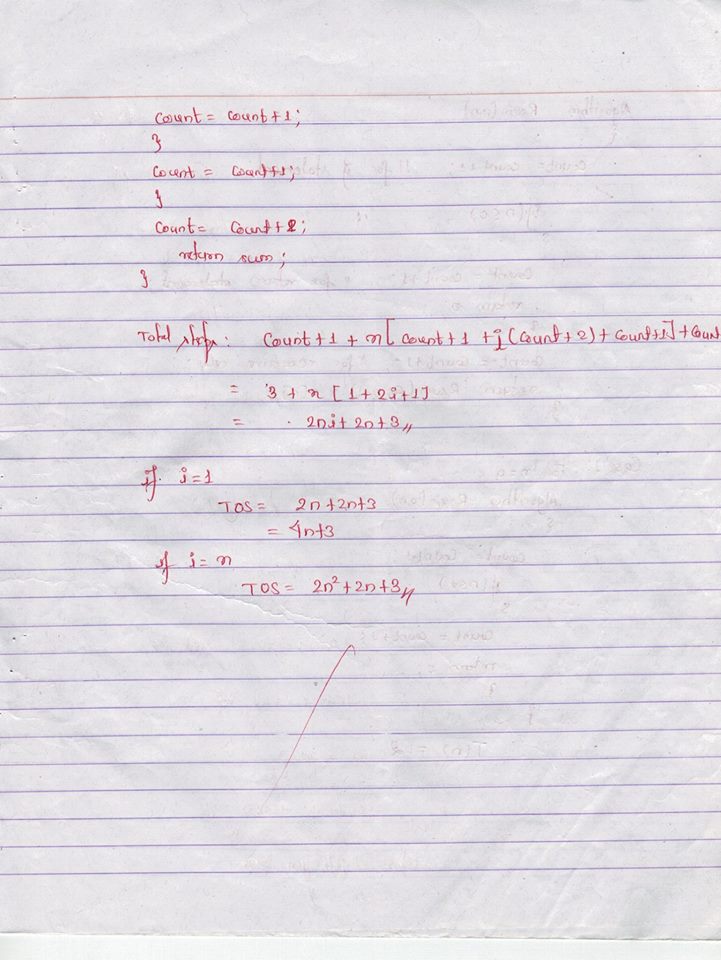 count = count+1;
}
count = count+1;
}
count = count+2;
return sum;
}
Total steps: count+1 + n[ count+1 + i (count+2) + count+1] + count
= 3 + n [1+2i+1]
= 2ni+2n+3
if i=1
TOS = 2n+2n+3
= 4n+3
if i = n
TOS = 2n²+2n+3